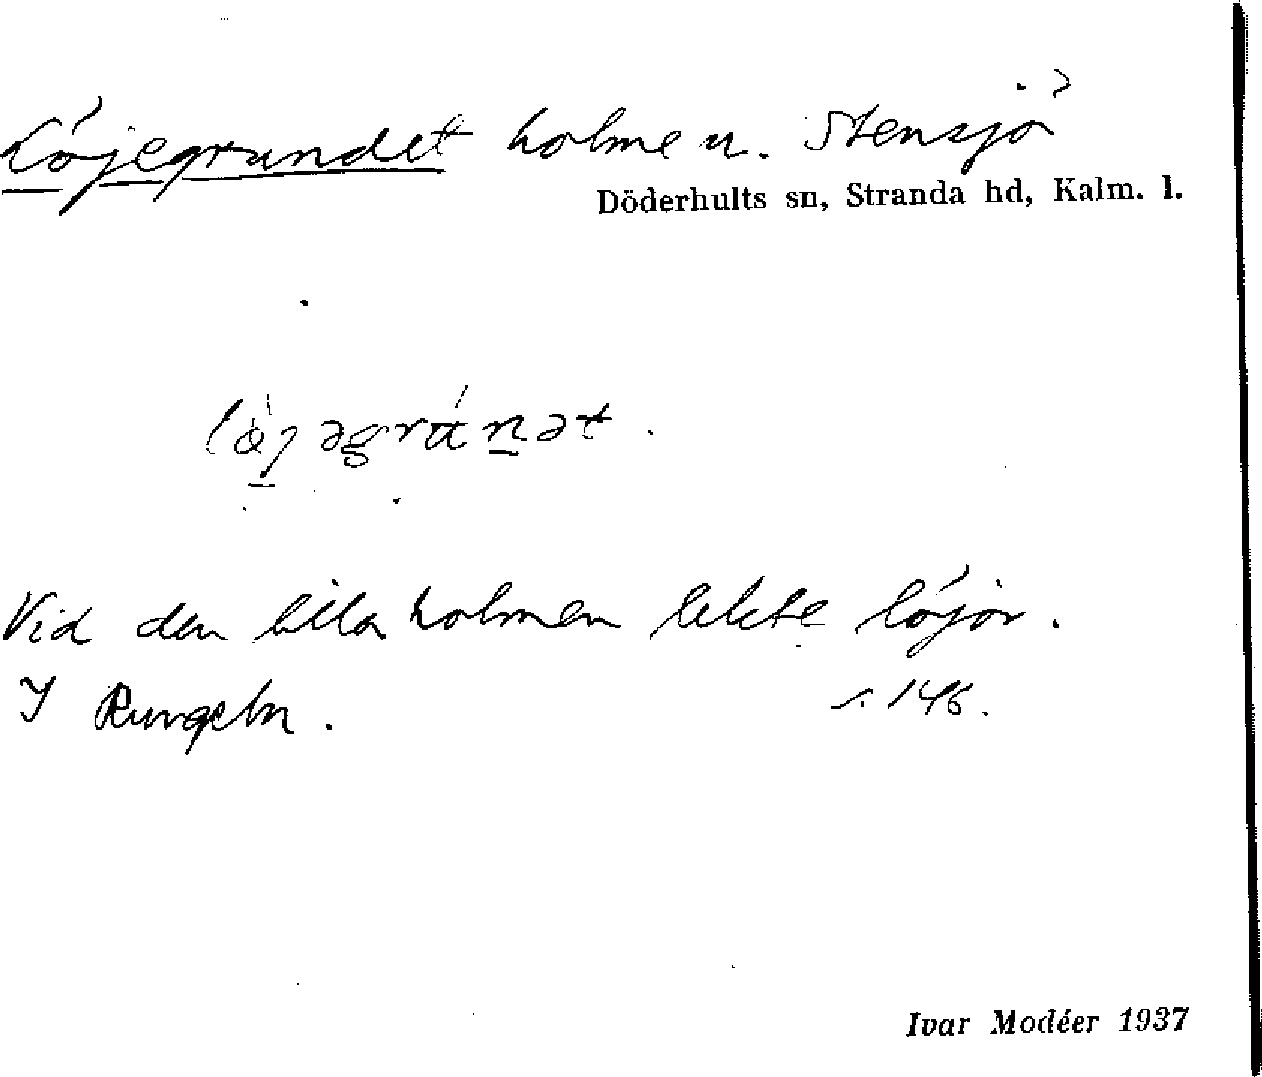 Löjegrundet holme u. Stensjö
Döderhults sn, Stranda hd, Kalm. l.
Vid den lilla holmen lekte löjor.
I Rungeln. s. 146.
Ivar Modéer 1937